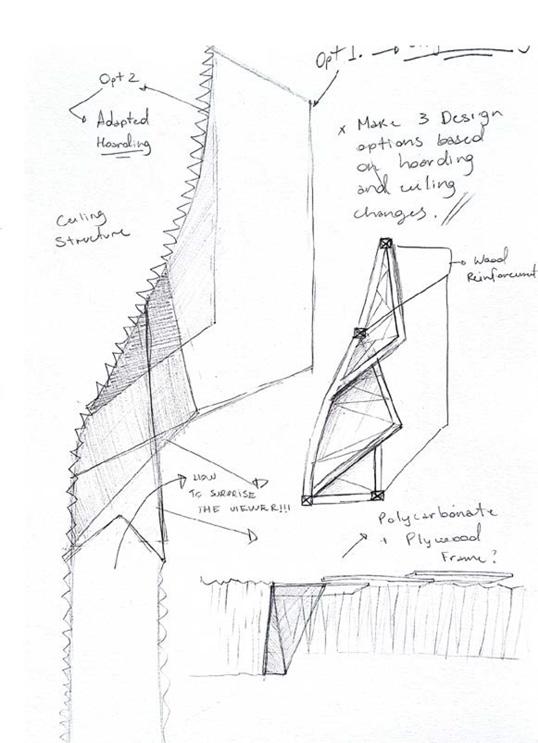 Opt 1.
Opt 2
Adapted
Hoarding
x Make 3 Design
options based
on hoarding
and ceiling
changes.
Ceiling
Structure
Wood
Reinforcement
HOW
TO SURPRISE
THE VIEWER!!!
Polycarbonate
+ Plywood
Frame?